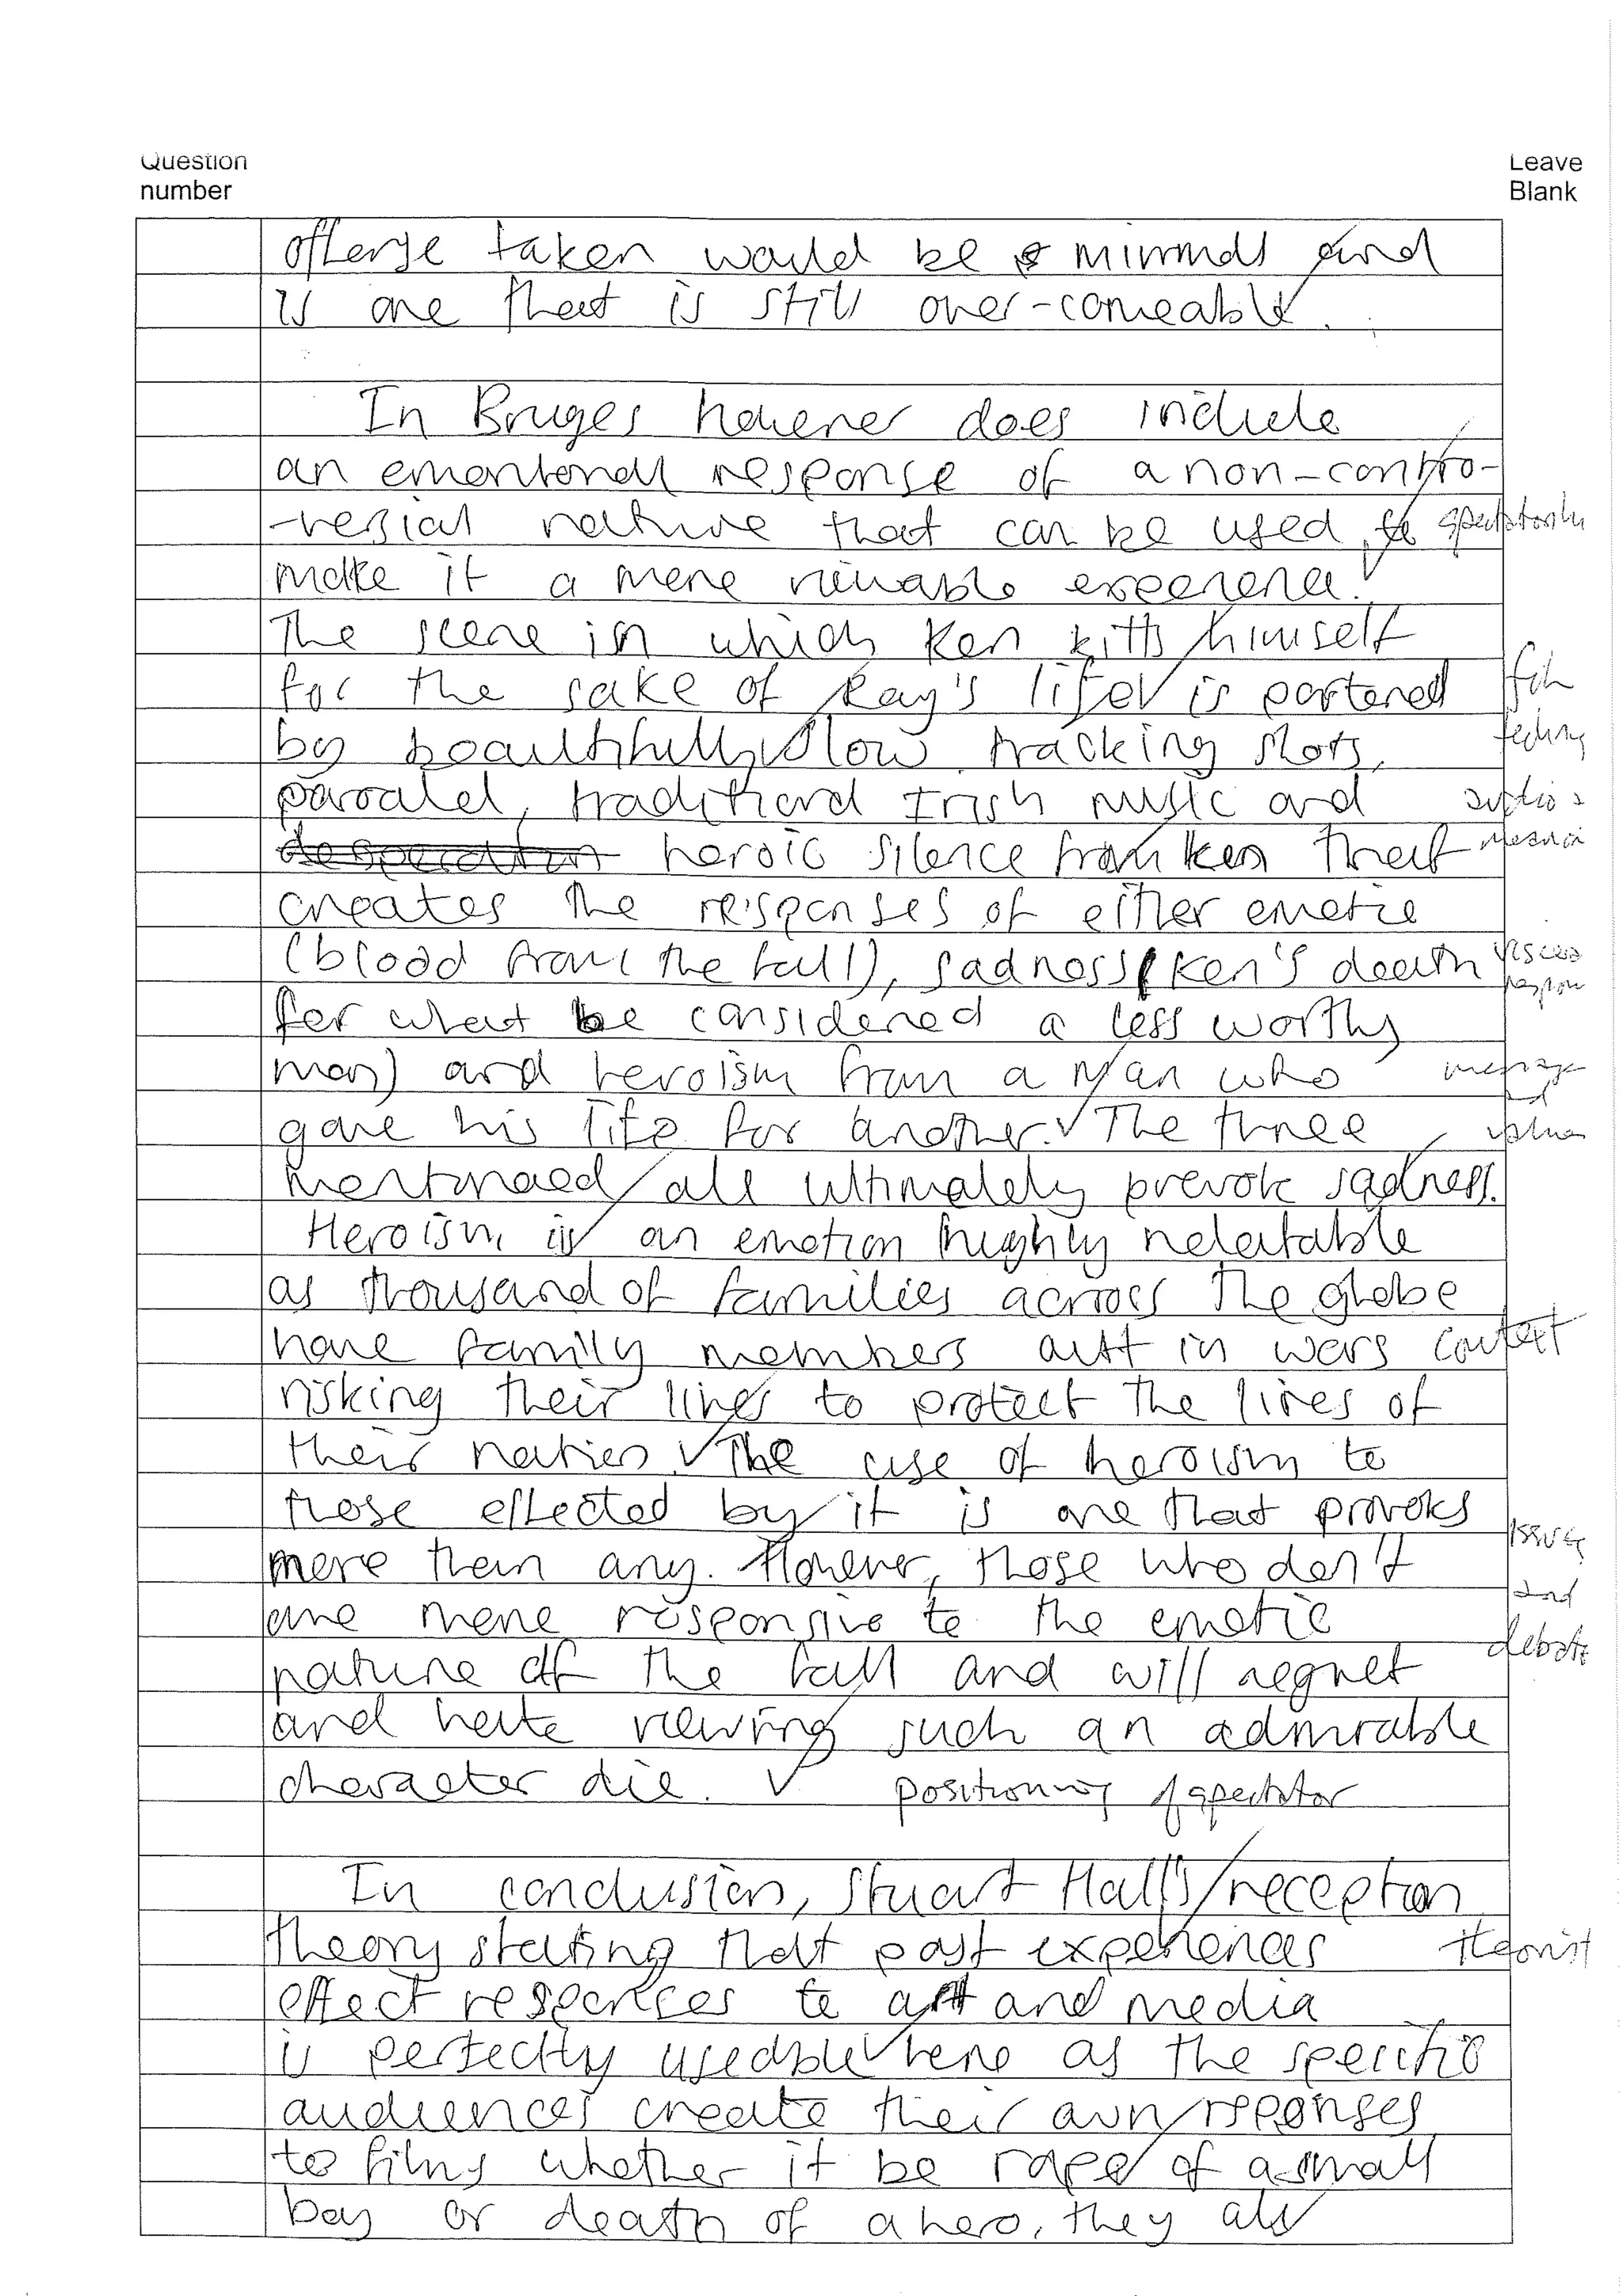 Question
number
Leave
Blank
offense taken would be minimal and
is one that is still over-comeable.
In Bruges however does include
an emontional response of a non-contro-
-versial nature that can be used to spectatorship
make it a more viewable experience.
The scene in which Ken kills himself
for the sake of Ray's life is portered film
by beautifully slow tracking shots, techniq
paralel, traditional Irish music and audio +
desperation heroic silence from Ken that
creates the responses of either emetic
(blood from the fall), sadness (Ken's death visceral
for what be considered a less worthy response
man) and heroism from a man who message
gave his life for another. The three and values
mentioned all ultimately prevok sadness.
Heroism is an emotion highly relatable
as thousand of families across the globe
have family members out in wars context
risking their lives to protect the lives of
their nation. The use of heroism to
those effected by it is one that provoks
more than any. However, those who don't issues
are more responsive to the emetic and
nature of the fall and will regret debate
and hate viewing such an admirable
character die. positioning of spectator
In conclusion, Stuart Hall's reception
theory stating that past experiences theorist
effect responses to art and media
is perfectly useable here as the specific
audiences create their own responses
to films whether it be rape of a small
boy or death of a hero, they all